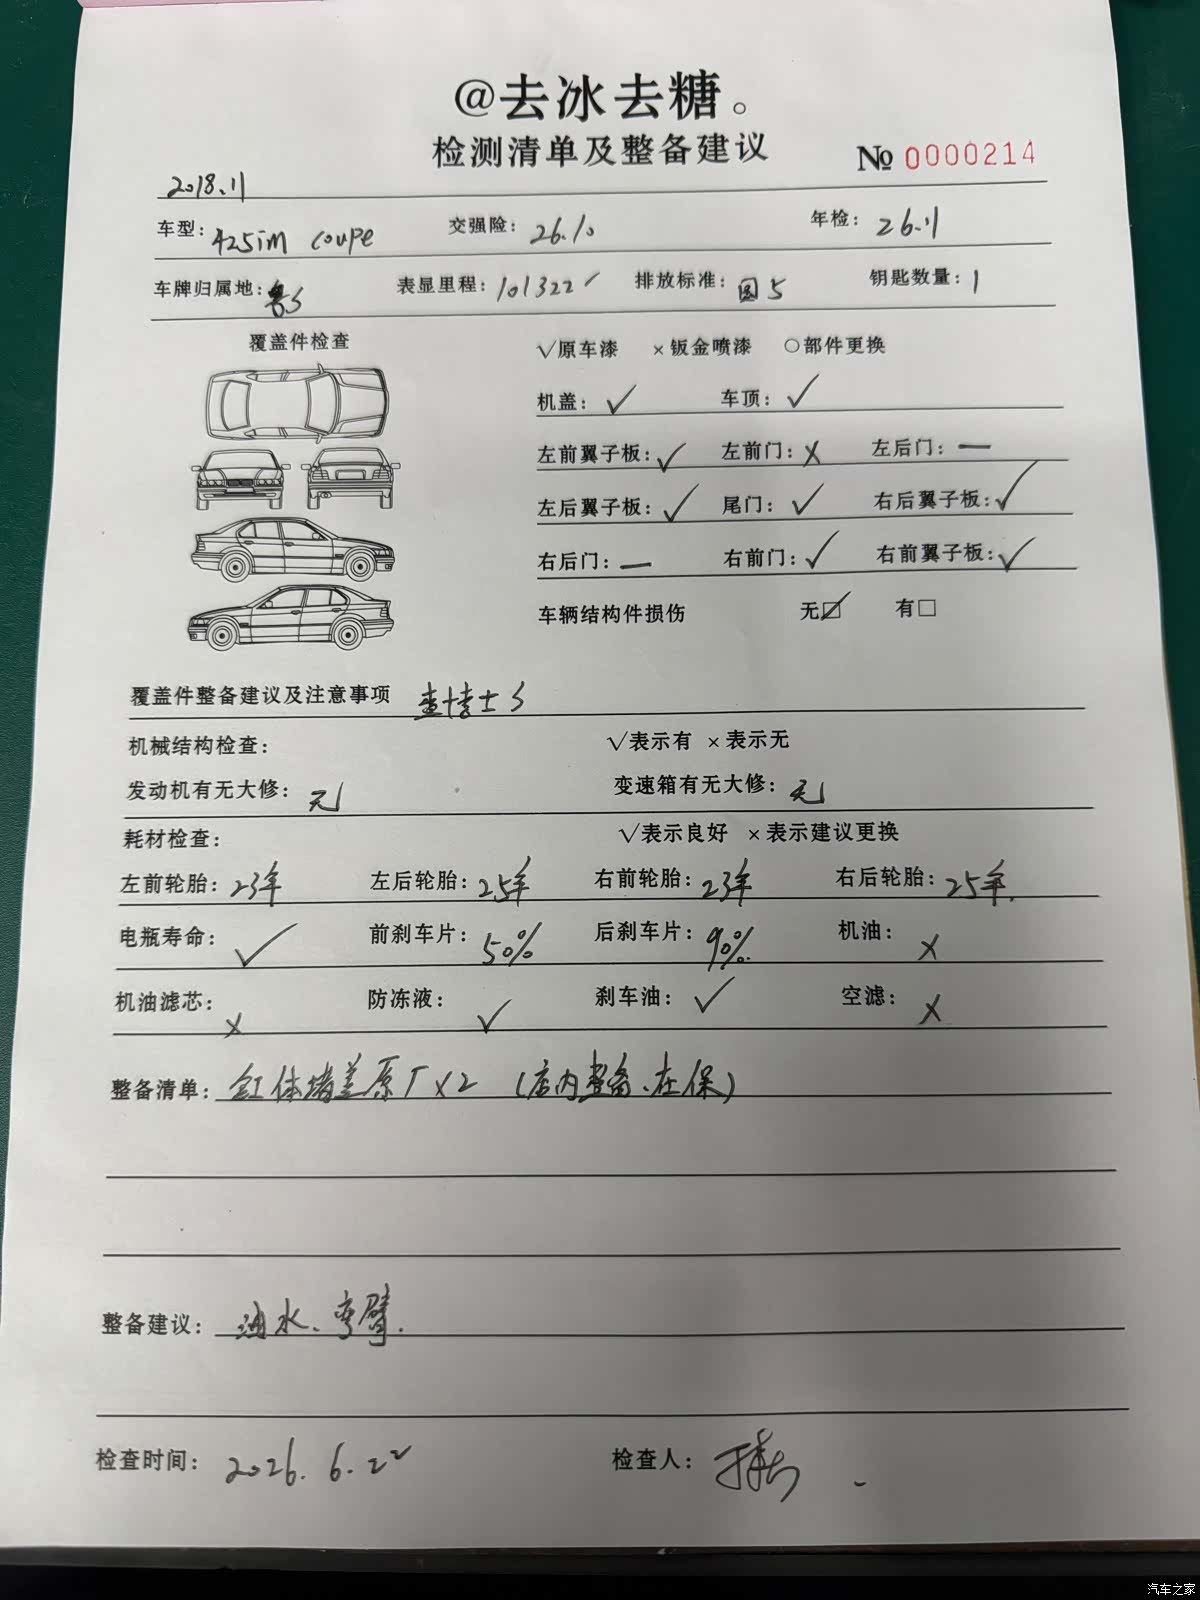 @去冰去糖。
检测清单及整备建议 № 0000214
2018.11
车型: 425im coupe 交强险: 26.10 年检: 26.11
车牌归属地: 鲁S 表显里程: 101322 ✓ 排放标准: 国5 钥匙数量: 1
覆盖件检查 √原车漆 ×钣金喷漆 ○部件更换
机盖: ✓ 车顶: ✓
左前翼子板: ✓ 左前门: × 左后门: —
左后翼子板: ✓ 尾门: ✓ 右后翼子板: ✓
右后门: — 右前门: ✓ 右前翼子板: ✓
车辆结构件损伤 无☑ 有□
覆盖件整备建议及注意事项 查博士
机械结构检查: √表示有 ×表示无
发动机有无大修: 无 变速箱有无大修: 无
耗材检查: √表示良好 ×表示建议更换
左前轮胎: 23年 左后轮胎: 25年 右前轮胎: 23年 右后轮胎: 25年.
电瓶寿命: ✓ 前刹车片: 50% 后刹车片: 90%. 机油: ×
机油滤芯: × 防冻液: ✓ 刹车油: ✓ 空滤: ×
整备清单: 缸体堵盖原厂×2 (店内整备、在保)
整备建议: 油水、弯臂.
检查时间: 2026.6.22 检查人:
汽车之家